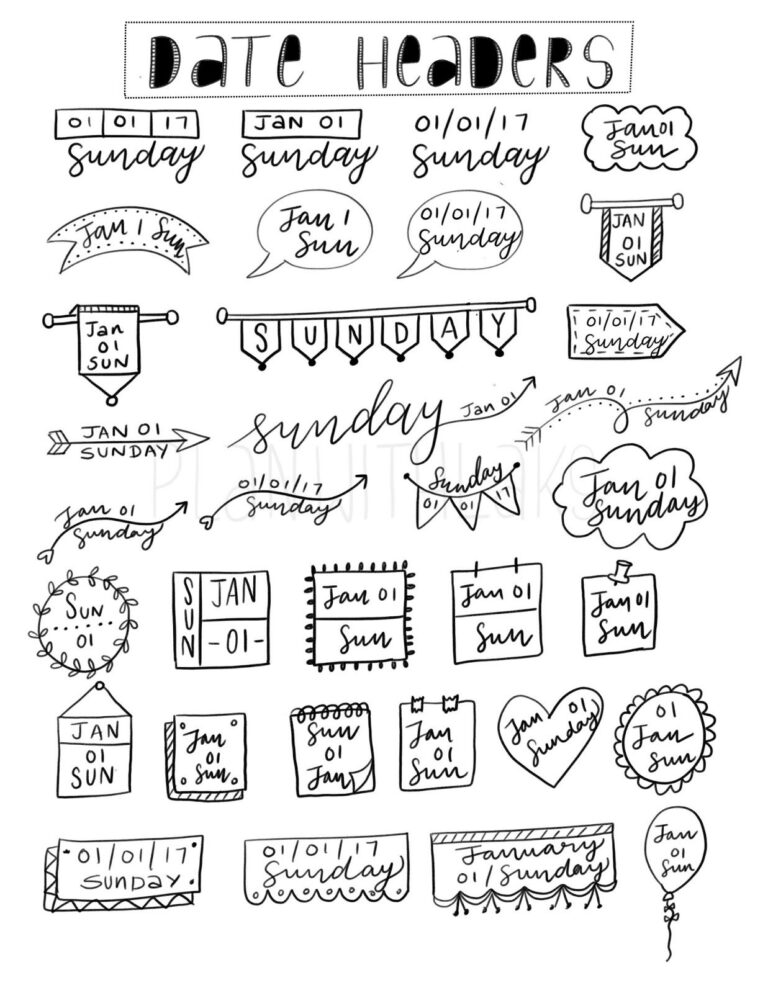 DATE HEADERS
01 01 17
Sunday
JAN 01
Sunday
01/01/17
Sunday
Jan 01
Sun
Jan 1 Sun
Jan 1
Sun
01/01/17
Sunday
JAN
01
SUN
Jan
01
SUN
SUNDAY
01/01/17
Sunday
JAN 01
SUNDAY
sunday
Jan 01
Jan 01
Sunday
PLANWITHLAKS
Jan 01
Sunday
01/01/17
Sunday
Sunday
01 01 17
Jan 01
Sunday
SUN
01
SUN
JAN
-01-
Jan 01
Sun
Jan 01
Sun
Jan 01
Sun
JAN
01
SUN
Jan
01
Sun
Sun
01
Jan
Jan
01
Sun
Jan 01
Sunday
01
Jan
Sun
01/01/17
SUNDAY
01/01/17
Sunday
January
01/Sunday
Jan
01
Sun